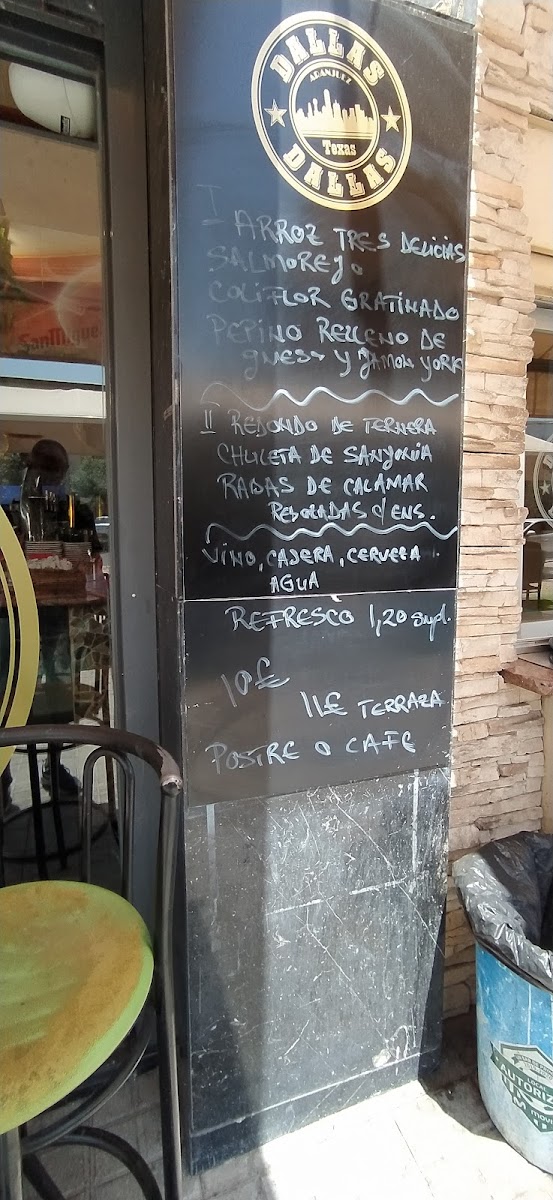 DALLAS
ARANJUEZ
Texas
DALLAS
I ARROZ TRES DELICIAS
SALMOREJO
COLIFLOR GRATINADO
PEPINO RELLENO DE
QUESO Y JAMON YORK
II REDONDO DE TERNERA
CHULETA DE SANJONIA
RABAS DE CALAMAR
REBOZADAS C/ ENS.
VINO, CASERA, CERVEZA
AGUA
REFRESCO 1,20 supl.
10€
11€ TERRAZA
POSTRE O CAFE
SanMiguel
AUTORIZ